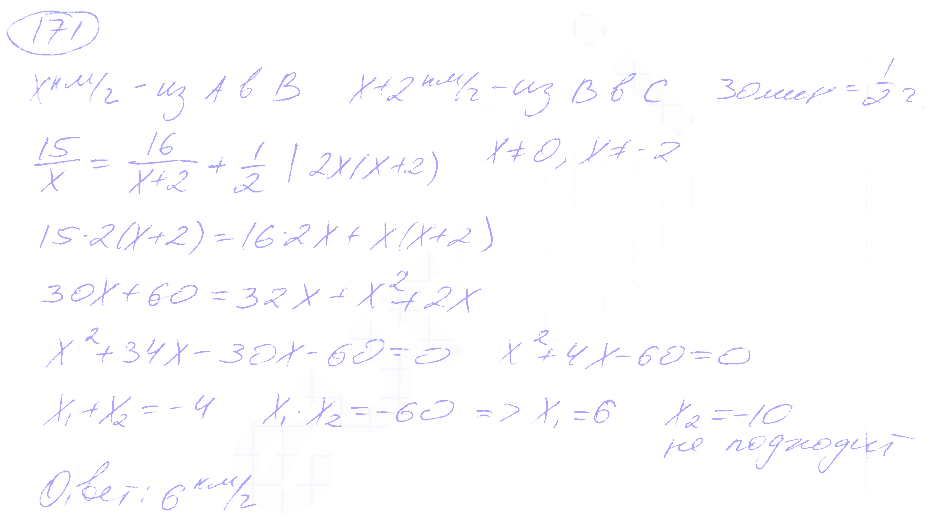 171
x км/г - из A в B x+2 км/г - из B в C 30 мин = 1/2 г.
15/x = 16/(x+2) + 1/2 | 2x(x+2) x≠0, x≠-2
15·2(x+2) = 16·2x + x(x+2)
30x+60 = 32x + x²+2x
x²+34x-30x-60=0 x²+4x-60=0
x₁+x₂=-4 x₁·x₂=-60 => x₁=6 x₂=-10
не подходит
Ответ: 6 км/г